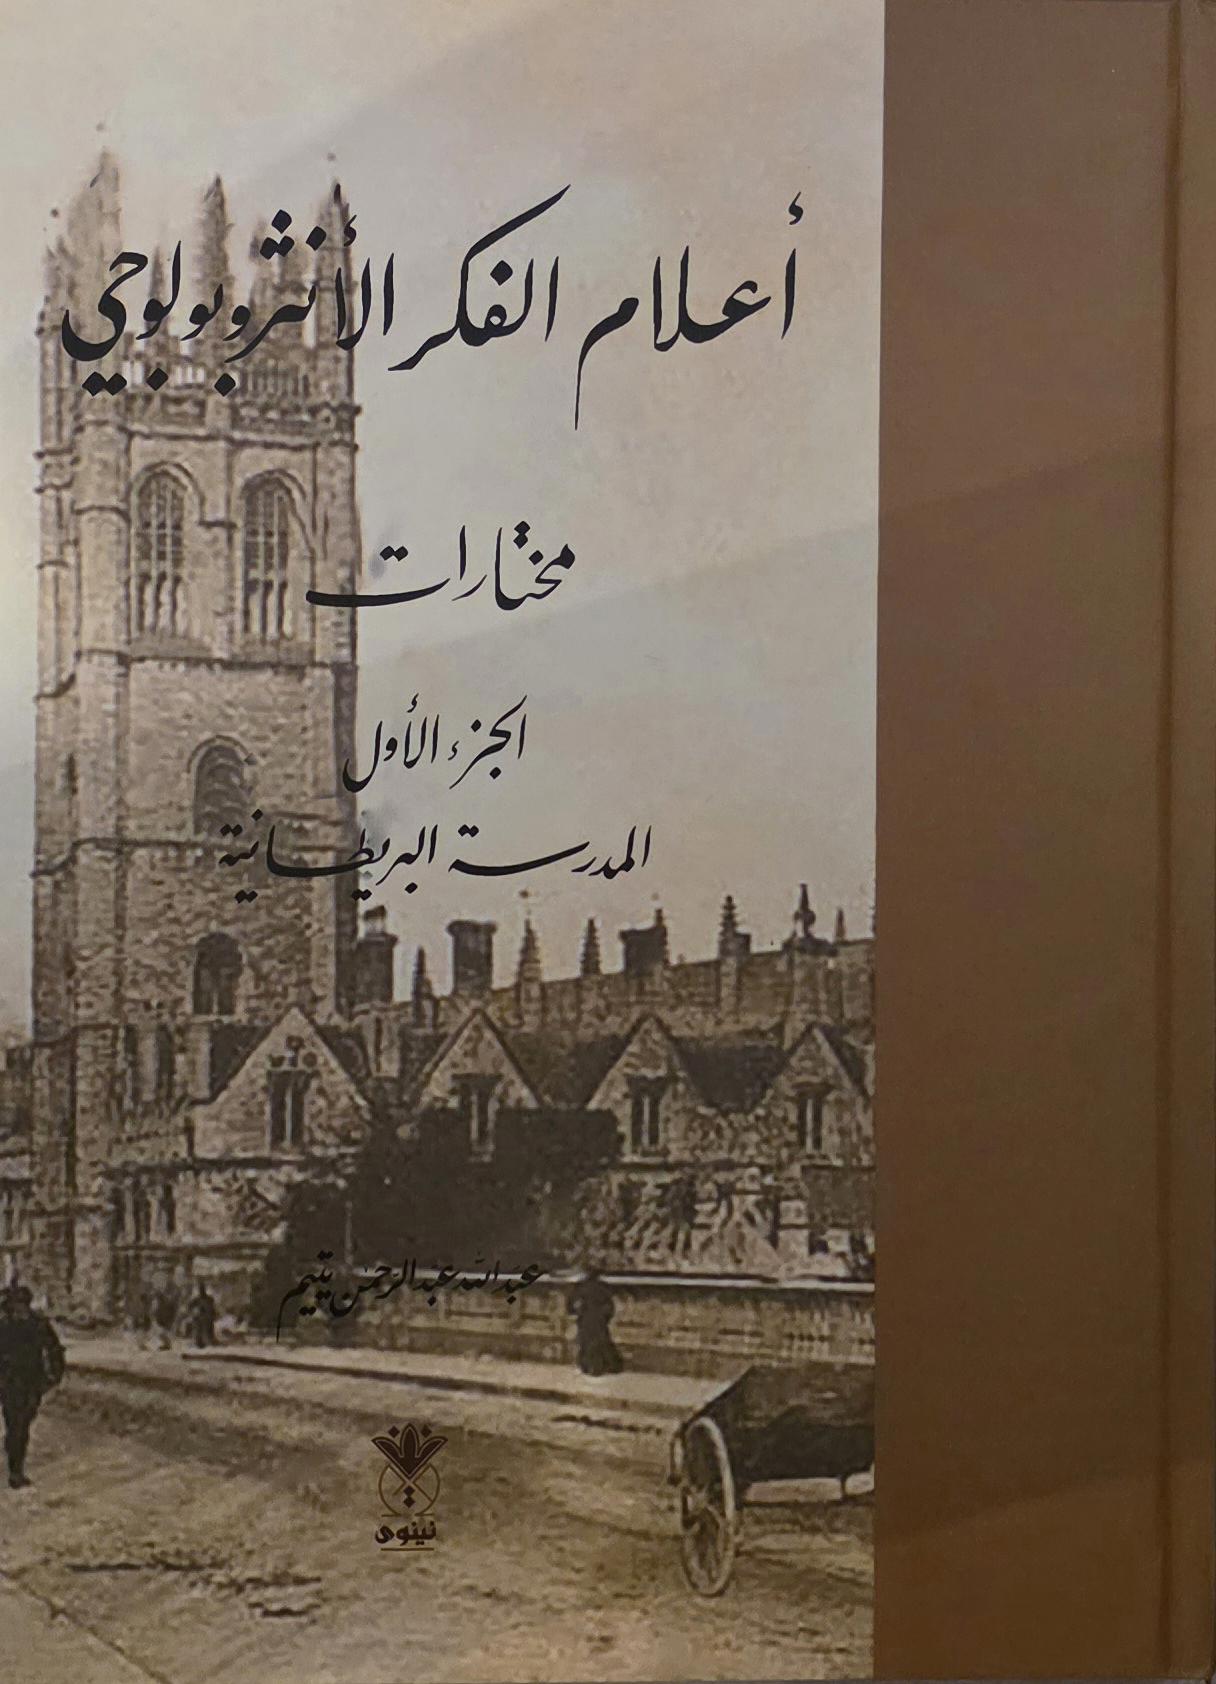 أعلام الفكر الأنثروبولوجي
مختارات
الجزء الأول
المدرسة البريطانية
عبدالله عبدالرحمن يتيم
نينوى